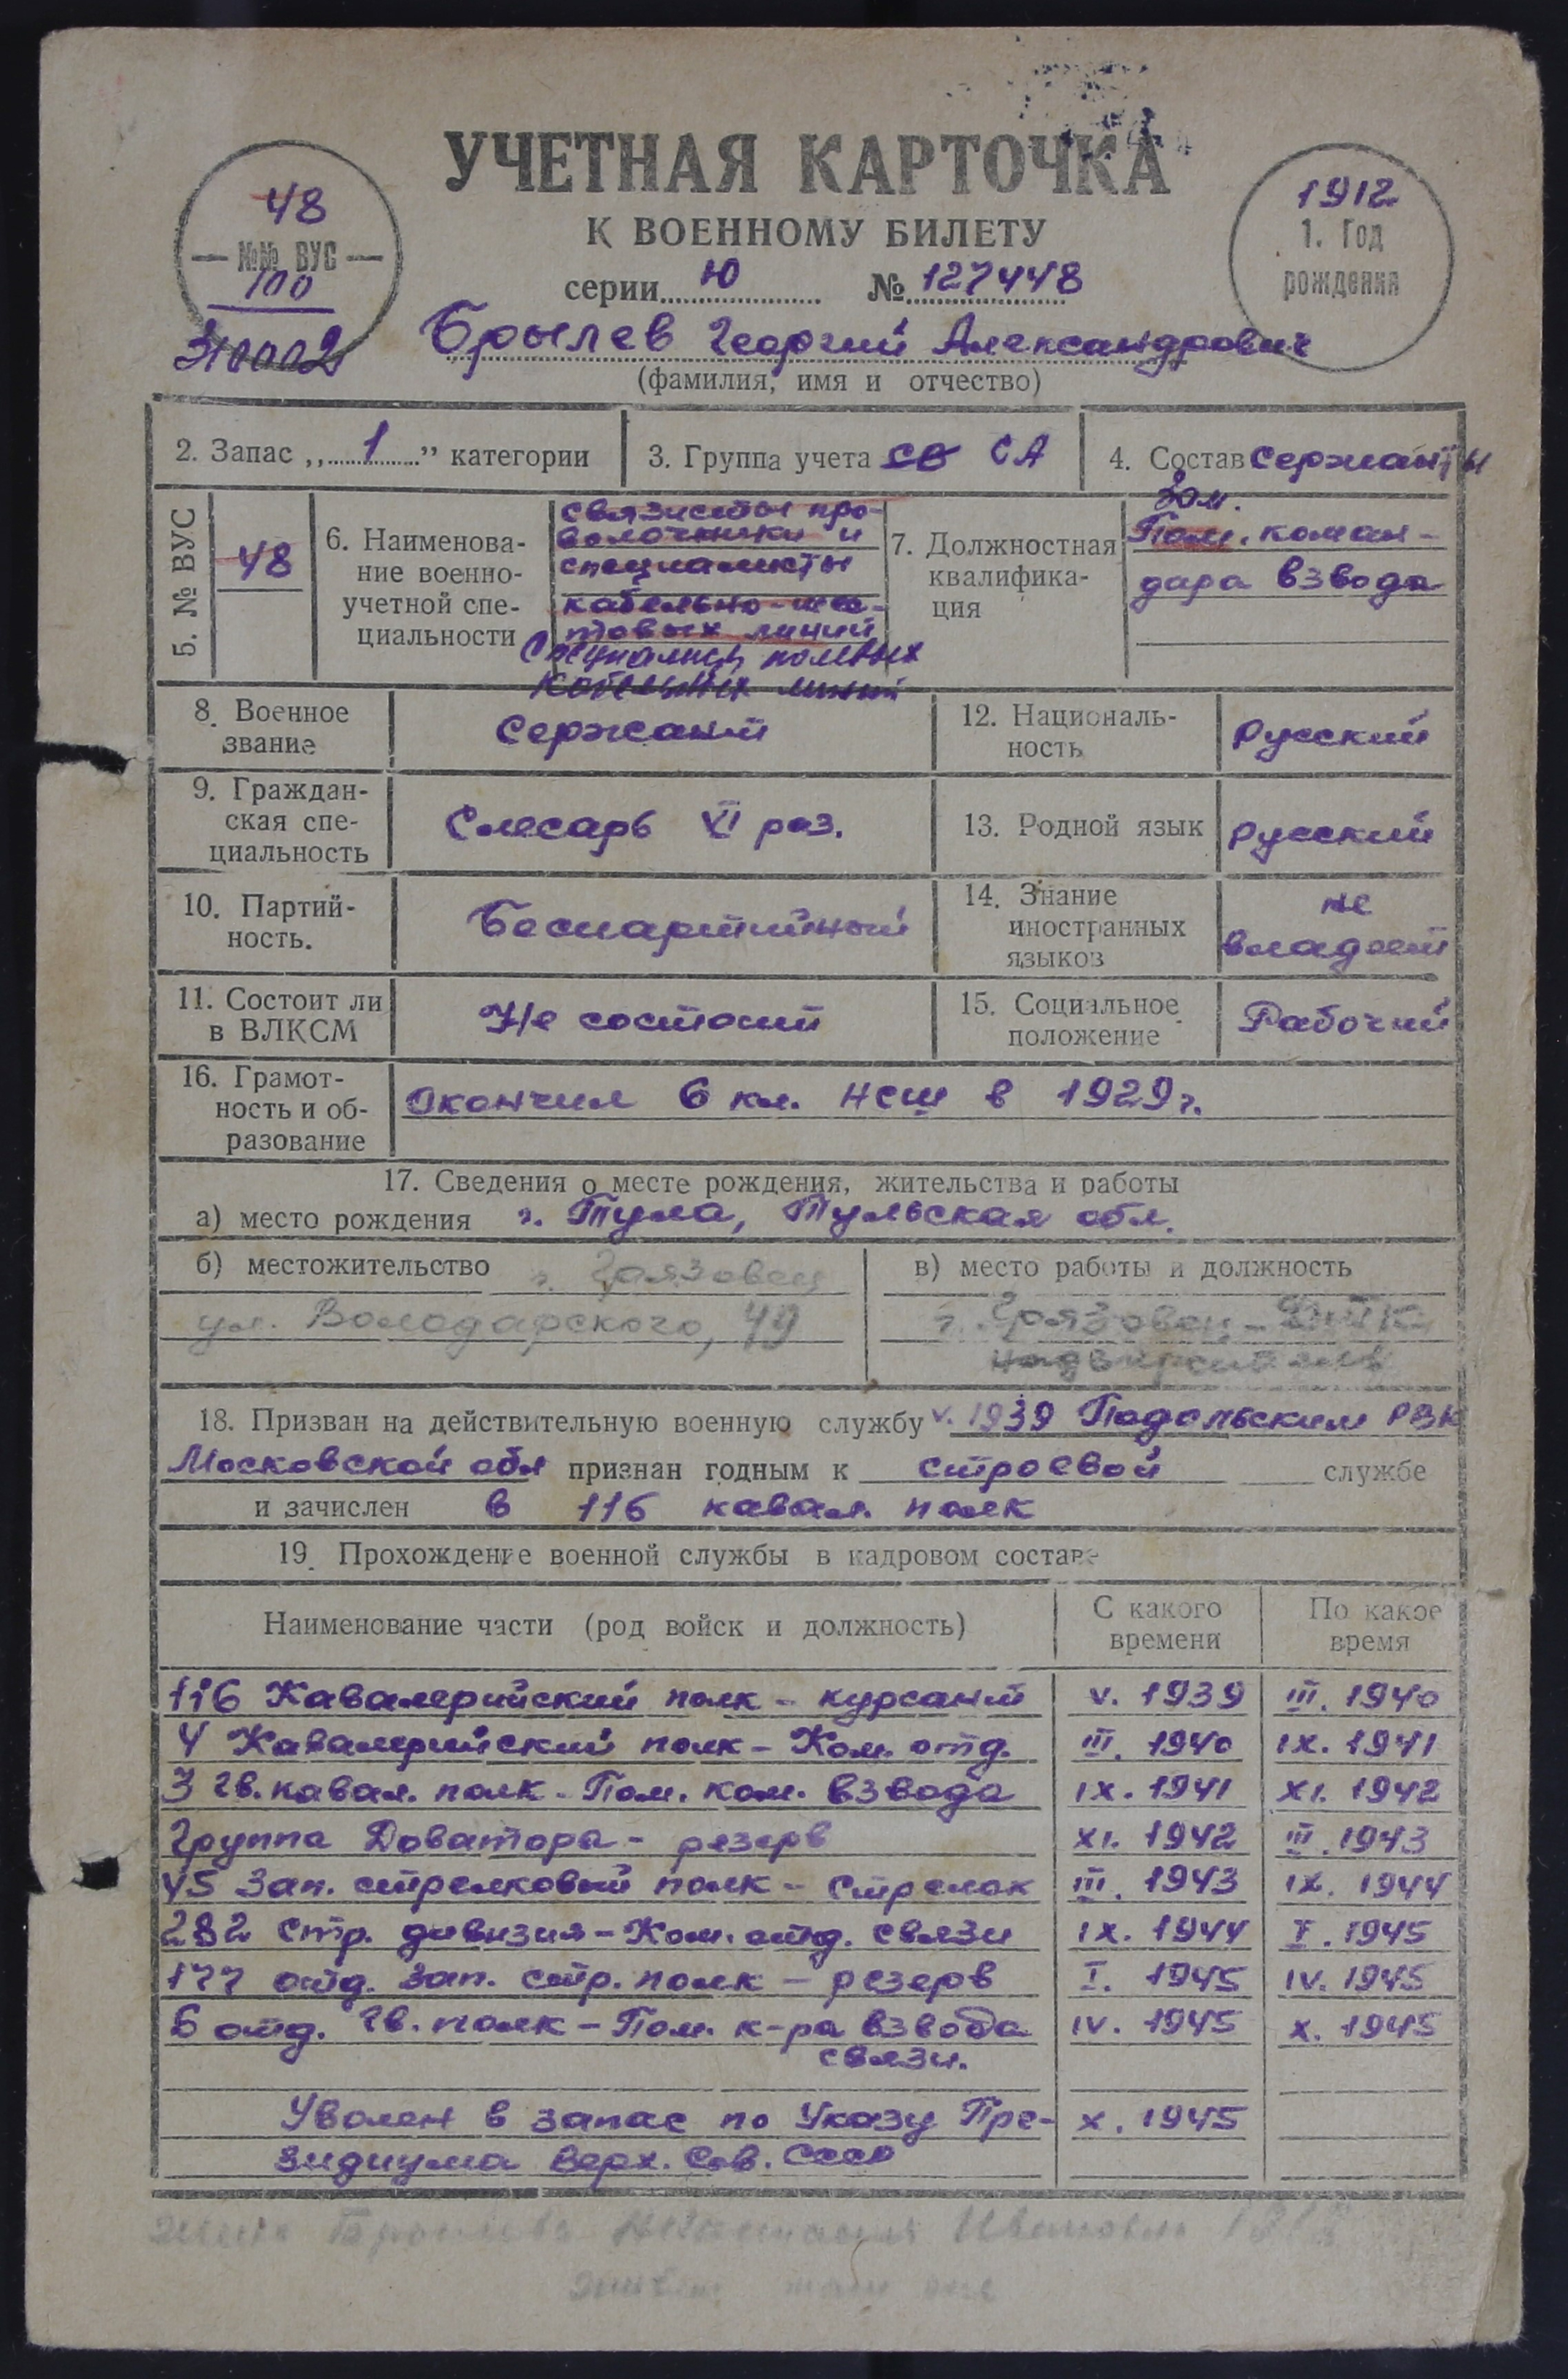 УЧЕТНАЯ КАРТОЧКА
К ВОЕННОМУ БИЛЕТУ
серии Ю № 127448
48
№№ ВУС
100
1912
1. Год
рождения
Брылев Георгий Александрович
(фамилия, имя и отчество)
2. Запас „1” категории
3. Группа учета СА
4. Состав Сержанты
5. № ВУС
48
6. Наименова-
ние военно-
учетной спе-
циальности
связисты про-
волочники и
специалисты
кабельно-шес-
товых линий
кабельных линий
7. Должностная
квалифика-
ция
Зам.
Пом. коман-
дира взвода
8. Военное
звание
Сержант
12. Националь-
ность
Русский
9. Граждан-
ская спе-
циальность
Слесарь VI раз.
13. Родной язык
Русский
10. Партий-
ность.
Беспартийный
14. Знание
иностранных
языков
не
владеет
11. Состоит ли
в ВЛКСМ
Не состоит
15. Социальное
положение
Рабочий
16. Грамот-
ность и об-
разование
Окончил 6 кл. НСШ в 1929 г.
17. Сведения о месте рождения, жительства и работы
а) место рождения г. Тула, Тульская обл.
б) местожительство г. Грязовец
ул. Володарского, 49
в) место работы и должность
г. Грязовец -
18. Призван на действительную военную службу V. 1939 Подольским РВК
Московской обл признан годным к строевой службе
и зачислен в 116 кавал. полк
19. Прохождение военной службы в кадровом составе
Наименование части (род войск и должность)
С какого
времени
По какое
время
116 Кавалерийский полк - курсант V. 1939 III. 1940
4 Кавалерийский полк - Ком. отд. III. 1940 IX. 1941
3 гв. кавал. полк - Пом. ком. взвода IX. 1941 XI. 1942
Группа Доватора - резерв XI. 1942 III. 1943
45 Зап. стрелковый полк - Стрелок III. 1943 IX. 1944
282 Стр. дивизия - Ком. отд. связи IX. 1944 I. 1945
177 отд. зап. стр. полк - резерв I. 1945 IV. 1945
6 отд. гв. полк - Пом. к-ра взвода IV. 1945 X. 1945
связи.
Уволен в запас по Указу Пре- X. 1945
зидиума Верх. Сов. СССР